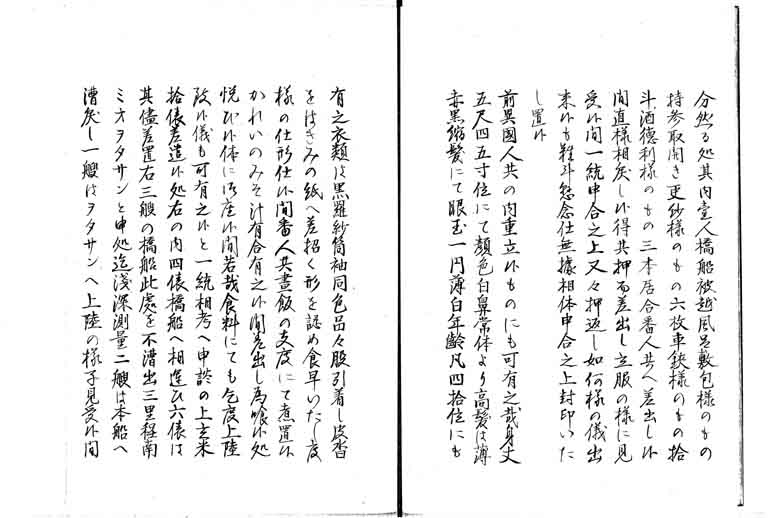 分然る処其内壹人橋船被越風呂敷包様のもの
持参取開き更紗様のもの六枚車鋏様のもの拾
斗酒徳利様のもの三本居合番人共へ差出し候
間直様相戻し候得共押而差出し立服の様に見
受候間一統申合之上又々押返し如何様の儀出
来候も難斗懸念仕無據相体申合之上封印いた
し置候
前異國人共の内重立候ものにも可有之哉身丈
五尺四五寸位にて顔色白鼻常体より高髪は薄
赤黒縮髪にて眼玉一円薄白年齢凡四拾位にも
有之衣類は黒羅紗筒袖同色品々股引着し皮沓
をはきみの紙へ差招く形を認め食早いたし度
様の仕形仕候間番人共晝飯の支度にて煮置候
かれいのみそ汁有合有之候間差出し為喰候処
悦び候体に御座候間若哉食料にても乞度上陸
致候儀も可有之候と一統相考へ申談の上玄米
拾俵差遣候処右の内四俵橋船へ相運び六俵は
其儘差置右三艘の橋船此處を不漕出三里程南
ミオヲタサンと申処迄浅深測量二艘は本船へ
漕戻し一艘はヲタサンへ上陸の様子見受候間